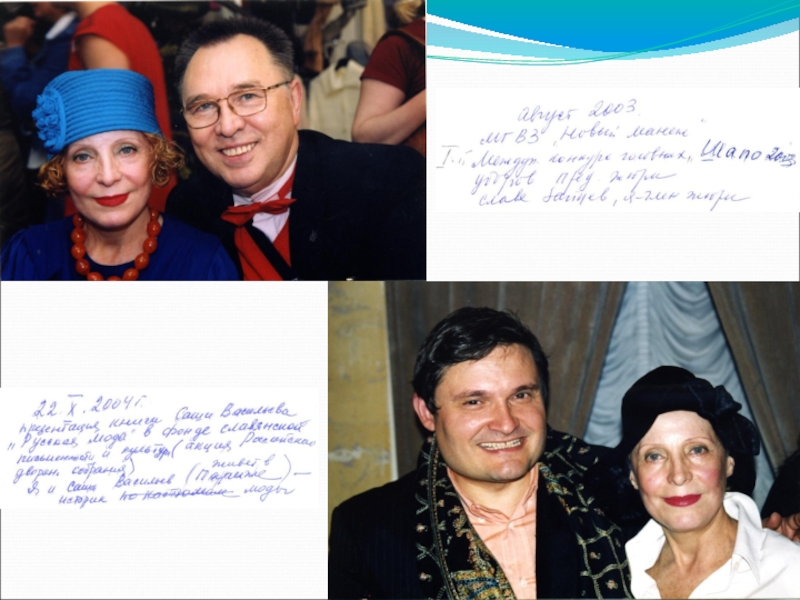 август 2003.
МГВЗ „Новый манеж"
I-й Междун. конкурс головных „Шапо 2003
уборов пред жюри
слава Зайцев, я-член жюри
22.X.2004 г.
презентация книги Саши Васильева
„Русская мода" в фонде славянской
письменности и культуры (акция Российское
дворян. собрания)
Я и саша Васильев (живёт в Париже) —
историк по костюмам моды